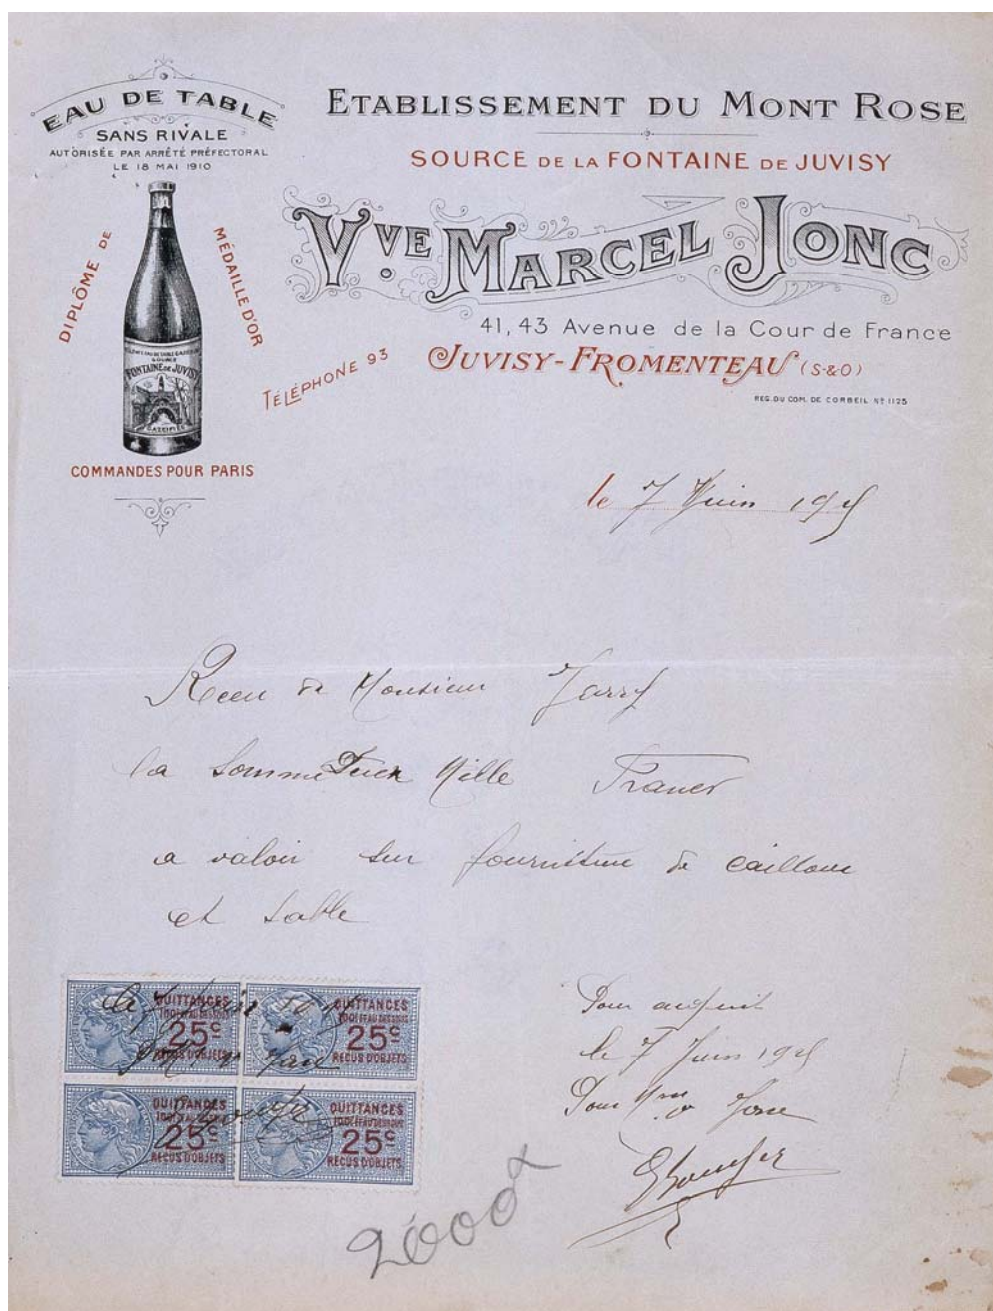 EAU DE TABLE
SANS RIVALE
AUTORISÉE PAR ARRÊTÉ PRÉFECTORAL
LE 18 MAI 1910
DIPLÔME DE
MÉDAILLE D'OR
FONTAINE DE JUVISY
GAZEIFIÉE
COMMANDES POUR PARIS
TÉLÉPHONE 93
ETABLISSEMENT DU MONT ROSE
SOURCE DE LA FONTAINE DE JUVISY
VVE MARCEL JONC
41, 43 Avenue de la Cour de France
JUVISY-FROMENTEAU (S-&O)
REG. DU COM. DE CORBEIL Nº 1125
le 7 Juin 1925
Recu de Monsieur Jarry
la somme Deux Mille Francs
a valoir sur fourniture de cailloux
et sable
QUITTANCES
25c
RECUS D'OBJETS
QUITTANCES
25c
RECUS D'OBJETS
QUITTANCES
25c
RECUS D'OBJETS
QUITTANCES
25c
RECUS D'OBJETS
Pour acquit
le 7 Juin 1925
Pour Mme Jonc
2000